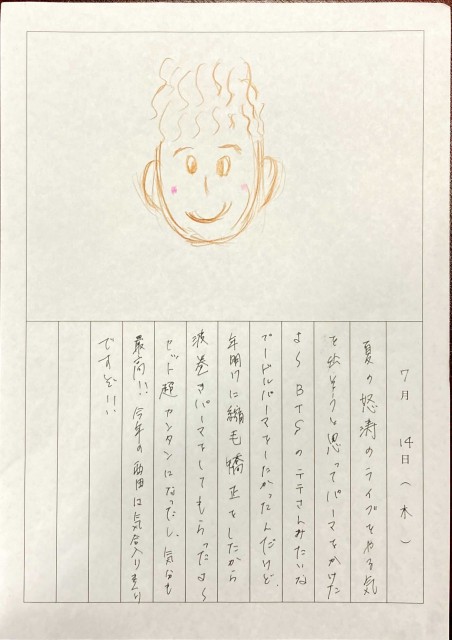 7月 14日(木)
夏の怒涛のライブをやる気
を出そうと思ってパーマをかけた
よ〜BTSのテテさんみたいな
プードルパーマをしたかったんだけど、
年明けに縮毛矯正をしたから
波巻きパーマをしてもらったよ〜
セット超カンタンになったし、気分も
最高!!今年の西田は気合入りまくり
ですぞ!!